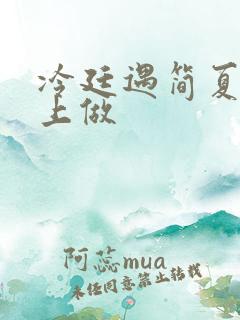 冷廷遇简夏
上做
阿蕊mua
未经同意禁止转载